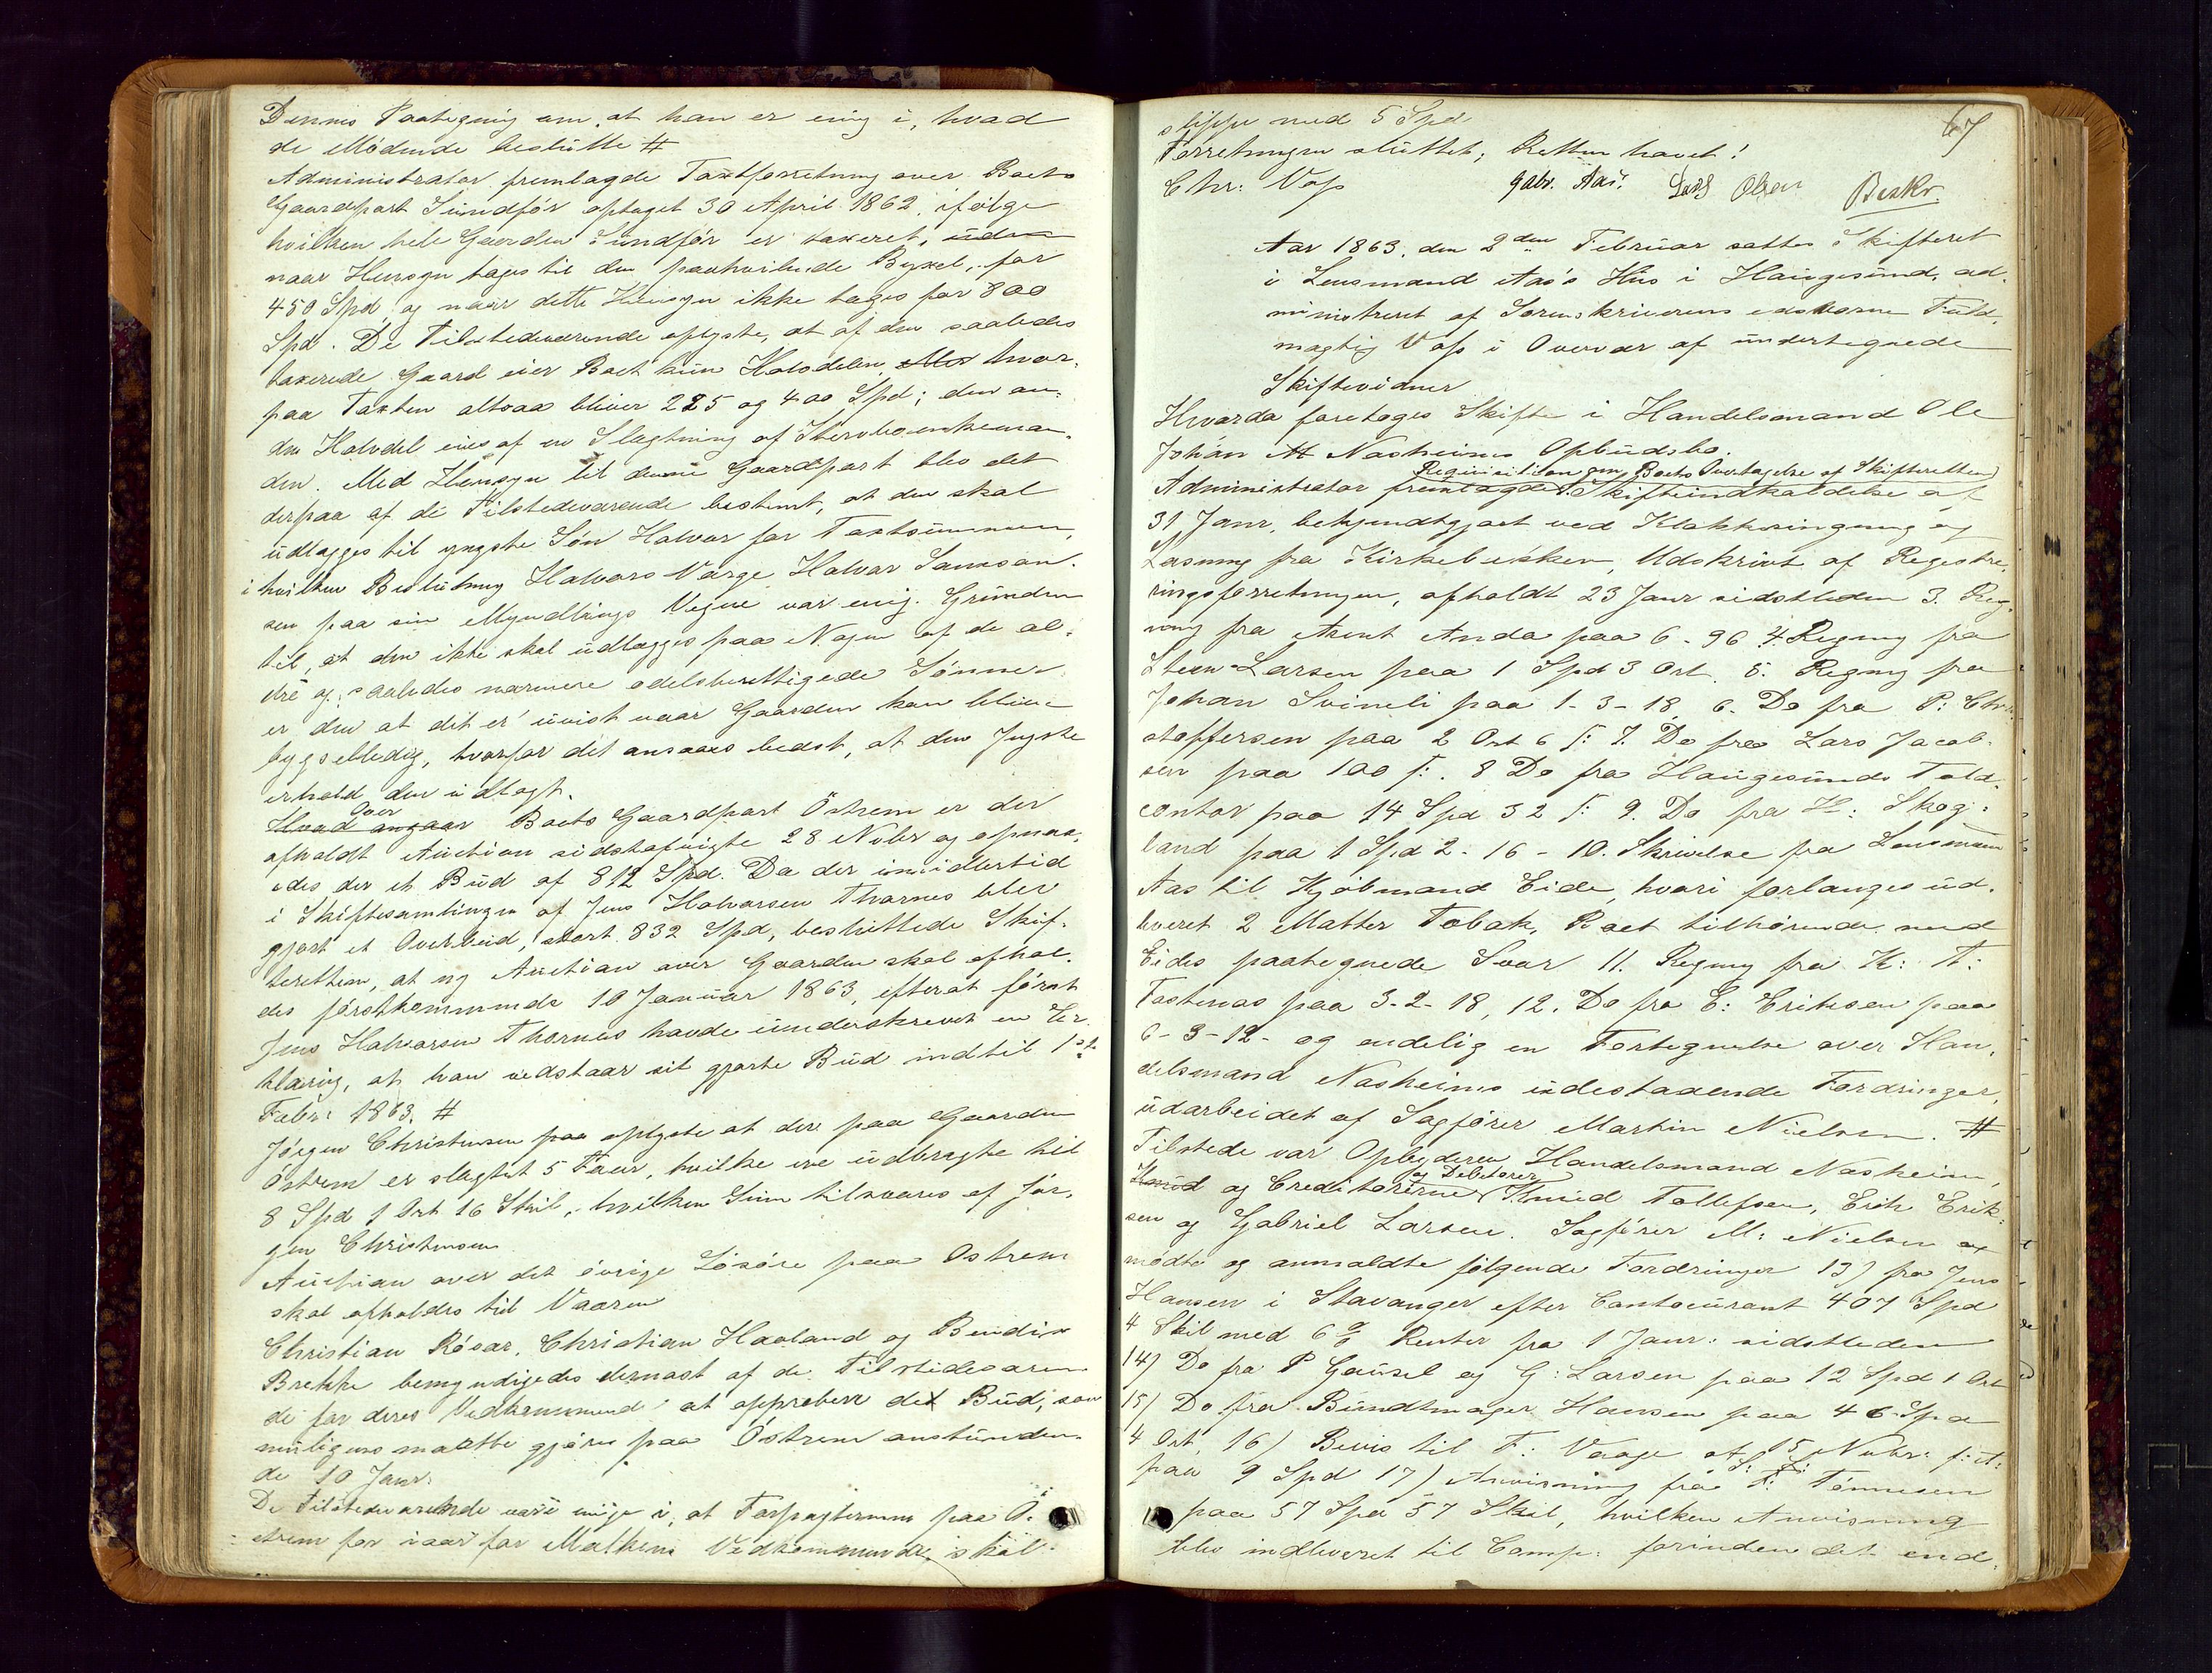 Dennes Paategning om, at han er enig i, hvad
de Mødende beslutte #
Administrator fremlagde Taxtforretning over Boets
Gaardpart Sundfør optaget 30 April 1862, ifølge
hvilken hele Gaarden Sundfør er taxeret, uden
naar Hensyn tages til den paahvilende Byxel, for
450 Spd og naar dette Hensyn ikke tages for 800
Spd. De Tilstedeværende oplyste, at af den saaledes
taxerede Gaard eier Boet kun Halvdelen, hvor-
paa Taxten altsaa bliver 225 og 400 Spd; den an-
den Halvdel eies af en Slægtning af
den. Med Hensyn til denne Gaardpart blev det
derpaa af de Tilstedeværende bestemt, at den skal
udlægges til yngste Søn Halvor for Taxtsummen,
i hvilken Beslutning Halvors Værge Halvor Samson-
sen paa sin Myndlings Vegne var enig. Grunden
til, at den ikke skal udlægges paa Nogen af de æl-
dre og saaledes nærmere odelsberettigede Sønner
er den at det er uvist naar Gaarden kan blive
bygselledig, hvorfor det ansaaes bedst, at den Yngste
erholdt den udlagt.
Over
Hvad angaar Boets Gaardpart Østrem er der
afholdt Auction sidstafvigte 28 Novbr og opnaa-
edes der et Bud af 812 Spd. Da der imidlertid
i Skiftesamlingen af Jens Halvorsen Thornes blev
gjort et Overbud, stort 832 Spd, besluttede Skif-
teretten, at ny Auction over Gaarden skal afhol-
des førstkommende 10 Januar 1863, efterat først
Jens Halvorsen Thornes havde underskrevet en Er-
klæring, at han vedstaar sit gjorte Bud indtil 1ste
Febr: 1863. #
Jørgen Christensen paa oplyste at der paa Gaarden
Østrem er slagtet 5 Faar, hvilke ere udbragte til
8 Spd 1 Ort 16 Skil, hvilken Sum tilsvares af Jør-
gen Christensen
Auction over det øvrige Løsøre paa Østrem
skal afholdes til Vaaren
Christian Røvær, Christian Haaland og Bendix
Brekke bemyndigedes dernæst af de Tilstedeværen-
de for deres Vedkommende at approbere det Bud, som
muligens maatte gjøres paa Østrem anstunden-
de 10 Janr.
De Tilstedeværende vare enige i, at Forpagteren paa Ø-
strem for iaar for Vedkommende skal
slippe med 5 Spd
Forretningen sluttet; Retten hævet!
Chr: Voss Gabr. Aas. Lars Olsen Beskr.
67
Aar 1863, den 2den Februar sattes Skifteret
i Lensmand Aas's Hus i Haugesund, ad-
ministreret af Sorenskriverens edsvorne Fuld-
mægtig Voss i Overvær af undertegnede
Skiftevidner
Hvorda foretoges Skifte i Handelsmand Ole
Johan Nasheims Opbudsbo.
Requisition om Boets Overtagelse af Skifteretten
Administrator fremlagde Skifteindkaldelse af
31 Janr, bekjendtgjort ved Klokkeringning og
Læsning fra Kirkebakken, Udskrivt af Registre-
ringsforretningen, afholdt 23 Janr sidstleden 3. Reg-
ning fra Arent Anda paa 6 - 96 4. Regning fra
Steen Larsen paa 1 Spd 3 Ort. 5. Regning fra
Johan Svineli paa 1 - 3 - 18 6. Do fra P: Chri-
stoffersen paa 2 Ort 6 ſ: 7. Do fra Lars Jacob-
sen paa 100 ſ: 8 Do fra Haugesunds Told-
contor paa 14 Spd 32 ſ: 9. Do fra H: Skog-
land paa 1 Spd 2 - 16 - 10. Skrivelse fra Lensmand
Aas til Kjøbmand Eide, hvori forlanges ud-
leveret 2 Matter Tobak, Boet tilhørende med
Eides paategnede Svar 11. Regning fra K: T:
Fastenæs paa 3-2-18, 12. Do fra E: Eriksen paa
6-3-12- og endelig en Fortegnelse over Han-
delsmand Nasheims udestaaende Fordringer,
udarbeidet af Sagfører Martin Nielsen. #
Tilstede var Opbyderen Handelsmand Nasheim,
og Debitorer
Knud og Creditorerne Knud Tollefsen, Erik Erik-
sen og Gabriel Larsen. Sagfører M: Nielsen
mødte og anmældte følgende Fordringer 13) fra Jens
Hansen i Stavanger efter Contocurant 407 Spd
4 Skil med 6 % Renter fra 1 Janr: sidstleden
14) Do fra P Gausel og G: Larsen paa 12 Spd 1 Ort
15) Do fra Bundtmager Hansen paa 46 Spd
4 Ort, 16) Bevis til F: Vaage af 15 Novbr: f: A:
paa 9 Spd 17) Anvisning fra Tønnesen
paa 57 Spd 57 Skil, hvilken Anvisning
blev indleveret til Comp: forinden det end-